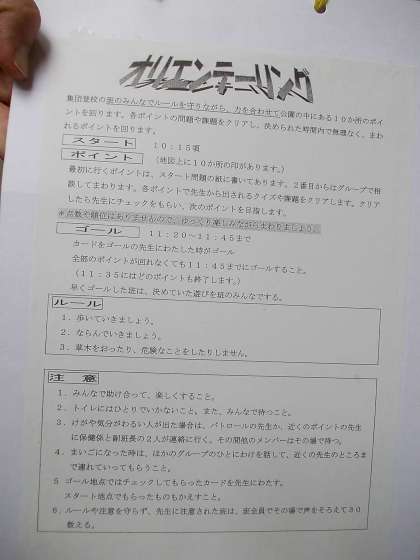 オリエンテーリング
集団登校の班のみんなでルールを守りながら、力を合わせて公園の中にある10か所のポイ
ントを回ります。各ポイントの問題や課題をクリアし、決められた時間内で無理なく、まわ
れるポイントを回ります。
スタート 10:15頃
ポイント (地図上に10か所の印があります。)
最初に行くポイントは、スタート問題の紙に書いてあります。2番目からはグループで相
談してまわります。各ポイントで先生から出されるクイズや課題をクリアします。クリア
したら先生にチェックをもらい、次のポイントを目指します。
*点数や順位はありませんので、ゆっくり楽しみながらまわりましょう。
ゴール 11:20~11:45まで
カードをゴールの先生にわたした時がゴール
全部のポイントが回れなくても11:45までにゴールすること。
(11:35にはどのポイントも終了します。)
早くゴールした班は、決めていた遊びを班のみんなでする。
ルール
1.歩いていきましょう。
2.ならんでいきましょう。
3.草木をおったり、危険なことをしたりしません。
注意
1.みんなで助け合って、楽しくすること。
2.トイレにはひとりでいかないこと。また、みんなで待つこと。
3.けがや気分がわるい人が出た場合は、パトロールの先生か、近くのポイントの先生
に保健係と副班長の2人が連絡に行く。その間他のメンバーはその場で待つ。
4.まいごになった時は、ほかのグループのひとにわけを話して、近くの先生のところま
で連れていってもらうこと。
5.ゴール地点ではチェックしてもらったカードを先生にわたす。
スタート地点でもらったものもかえすこと。
6.ルールや注意を守らず、先生に注意された班は、班全員でその場で声をそろえて30
数える。